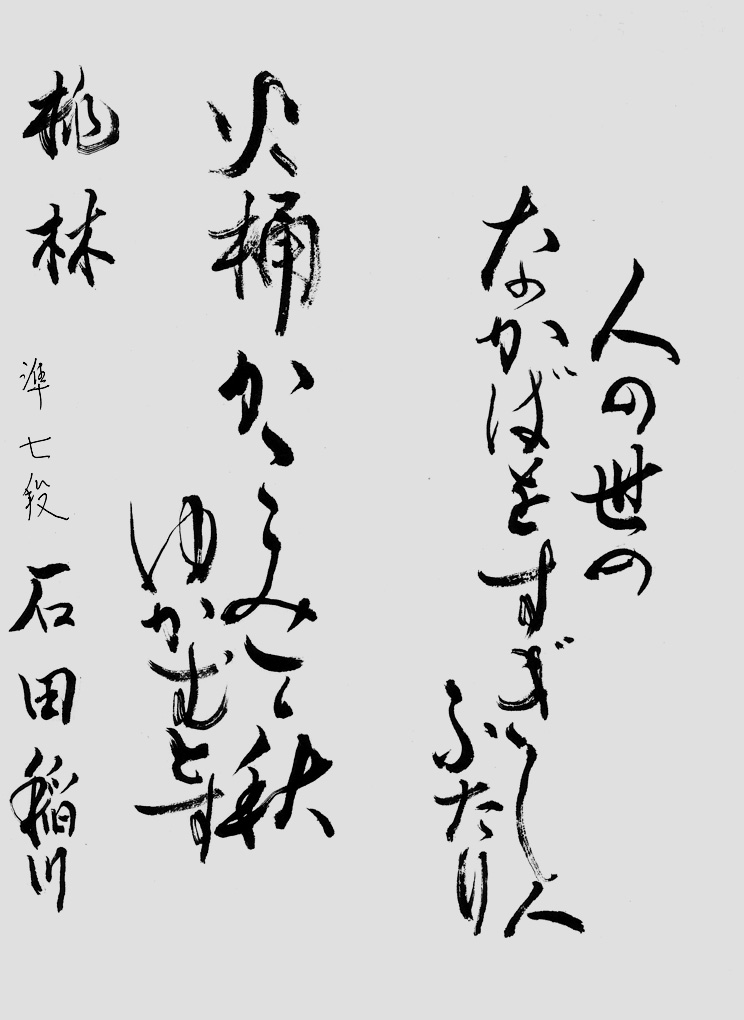 人の世の
なかばをすぎし人
ふたり
火桶かこみて秋
ゆかむとす
桃林 準七段 石田稲川